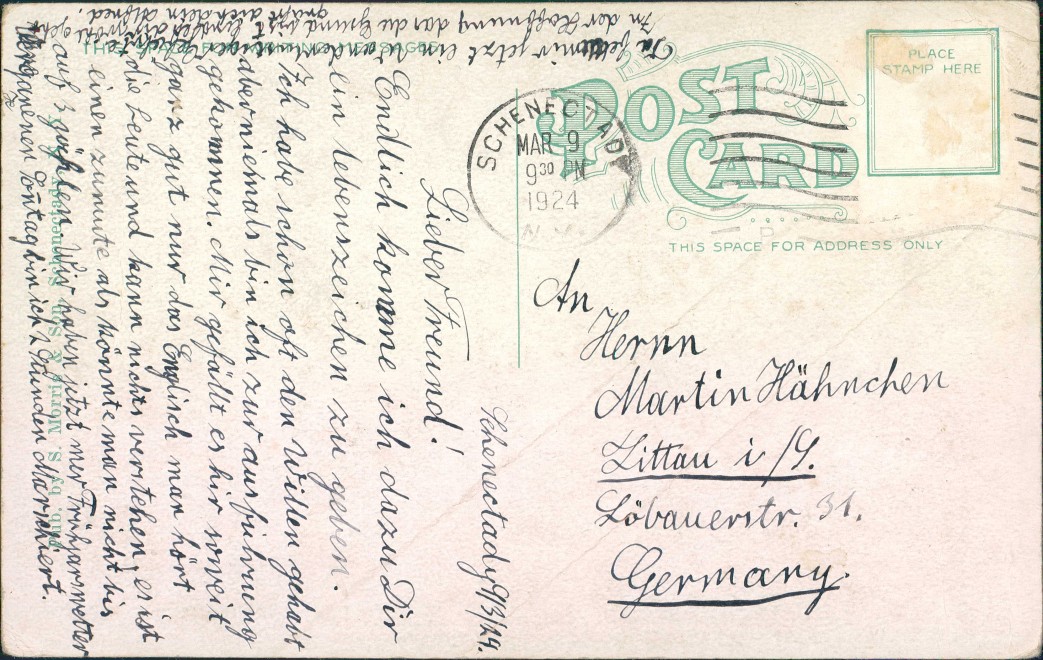 THIS SPACE FOR WRITING MESSAGES
POST
CARD
PLACE
STAMP HERE
SCHENECTADY
MAR 9
9 30 PM
1924
N.Y.
THIS SPACE FOR ADDRESS ONLY
An
Herrn
Martin Hähnchen
Zittau i/S.
Löbauerstr. 31.
Germany.
Schenectady 9/3/24.
Lieber Freund!
Endlich komme ich dazu Dir
ein lebenszeichen zu geben.
Ich habe schon oft den Willen gehabt
aber niemals bin ich zur ausführung
gekommen. Mir gefällt es hir soweit
ganz gut nur das Englisch man hört
die Leute und kann nichts verstehen, es ist
einen zumute als könnte man nicht bis
auf 3 zählen. Wir haben jetzt mer Frühjarswetter
vergangenen Sontag bin ich 2 Stunden Marschiert.
jetzt ein
In der Hoffnung das du Gesund bist
grüßt dich dein Alfred.
Pub. by J. S. Morris & Son, Schenectady